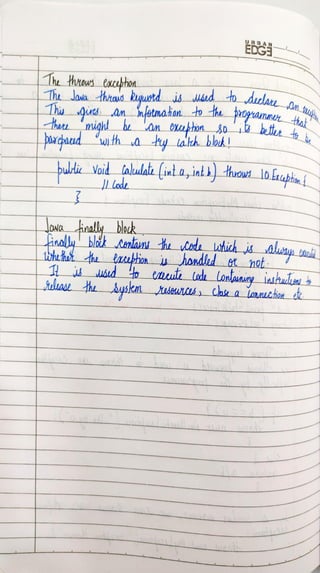 URBAN
EDGE
The throws exception
The Java throws keyword is used to declare an
This gives an information to the programmer that
there might be an exception so its better to be
parpared with a try catch block!
public void calculate (int a, int b) throws IO Exception {
// Code
}
Java finally block
finally block contains the code which is always
whether the exception is handled or not.
It is used to execute code containing instructions to
release the system resources, close a connection etc